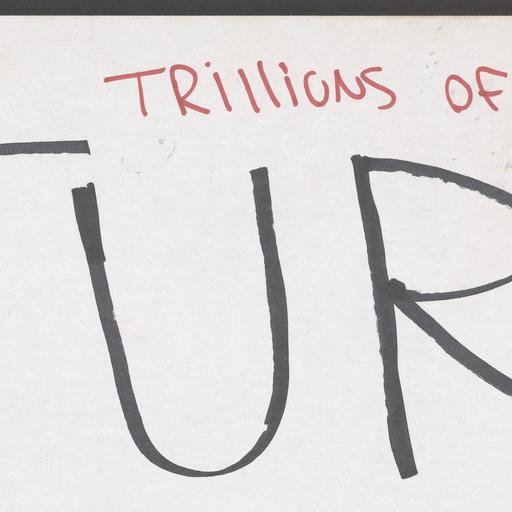 TRIllIONS OF
UR